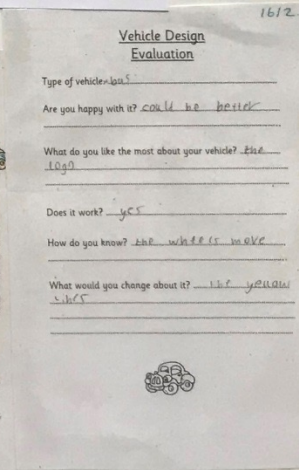 16/2
Vehicle Design
Evaluation
Type of vehicle: bus
Are you happy with it? could be better
What do you like the most about your vehicle? the
logo
Does it work? yes
How do you know? the wheels move
What would you change about it? the yellow